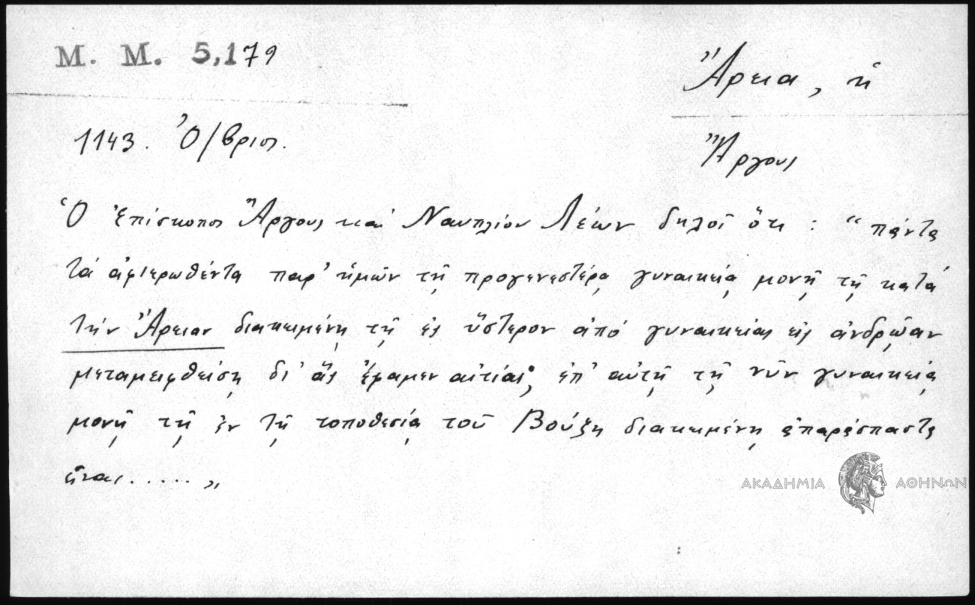 Μ. Μ. 5,179
Ἄρεια, ἡ
1143. Ὀ/βριος.
Ἄργους
Ὁ ἐπίσκοπος Ἄργους καὶ Ναυπλίου Λέων δηλοῖ ὅτι : " πάντα
τὰ ἀφιερωθέντα παρ' ἡμῶν τῇ προγενεστέρᾳ γυναικείᾳ μονῇ τῇ κατὰ
τὴν Ἄρειαν διακειμένῃ τῇ ἐς ὕστερον ἀπὸ γυναικείας εἰς ἀνδρῴαν
μεταμειφθείσῃ δι' ἃς ἔφαμεν αἰτίας, ἐπ' αὐτῇ τῇ νῦν γυναικείᾳ
μονῇ τῇ ἐν τῇ τοποθεσίᾳ τοῦ Βούζη διακειμένῃ ἀπαρέσπαστα
εἶναι..... "
ΑΚΑΔΗΜΙΑ ΑΘΗΝΩΝ